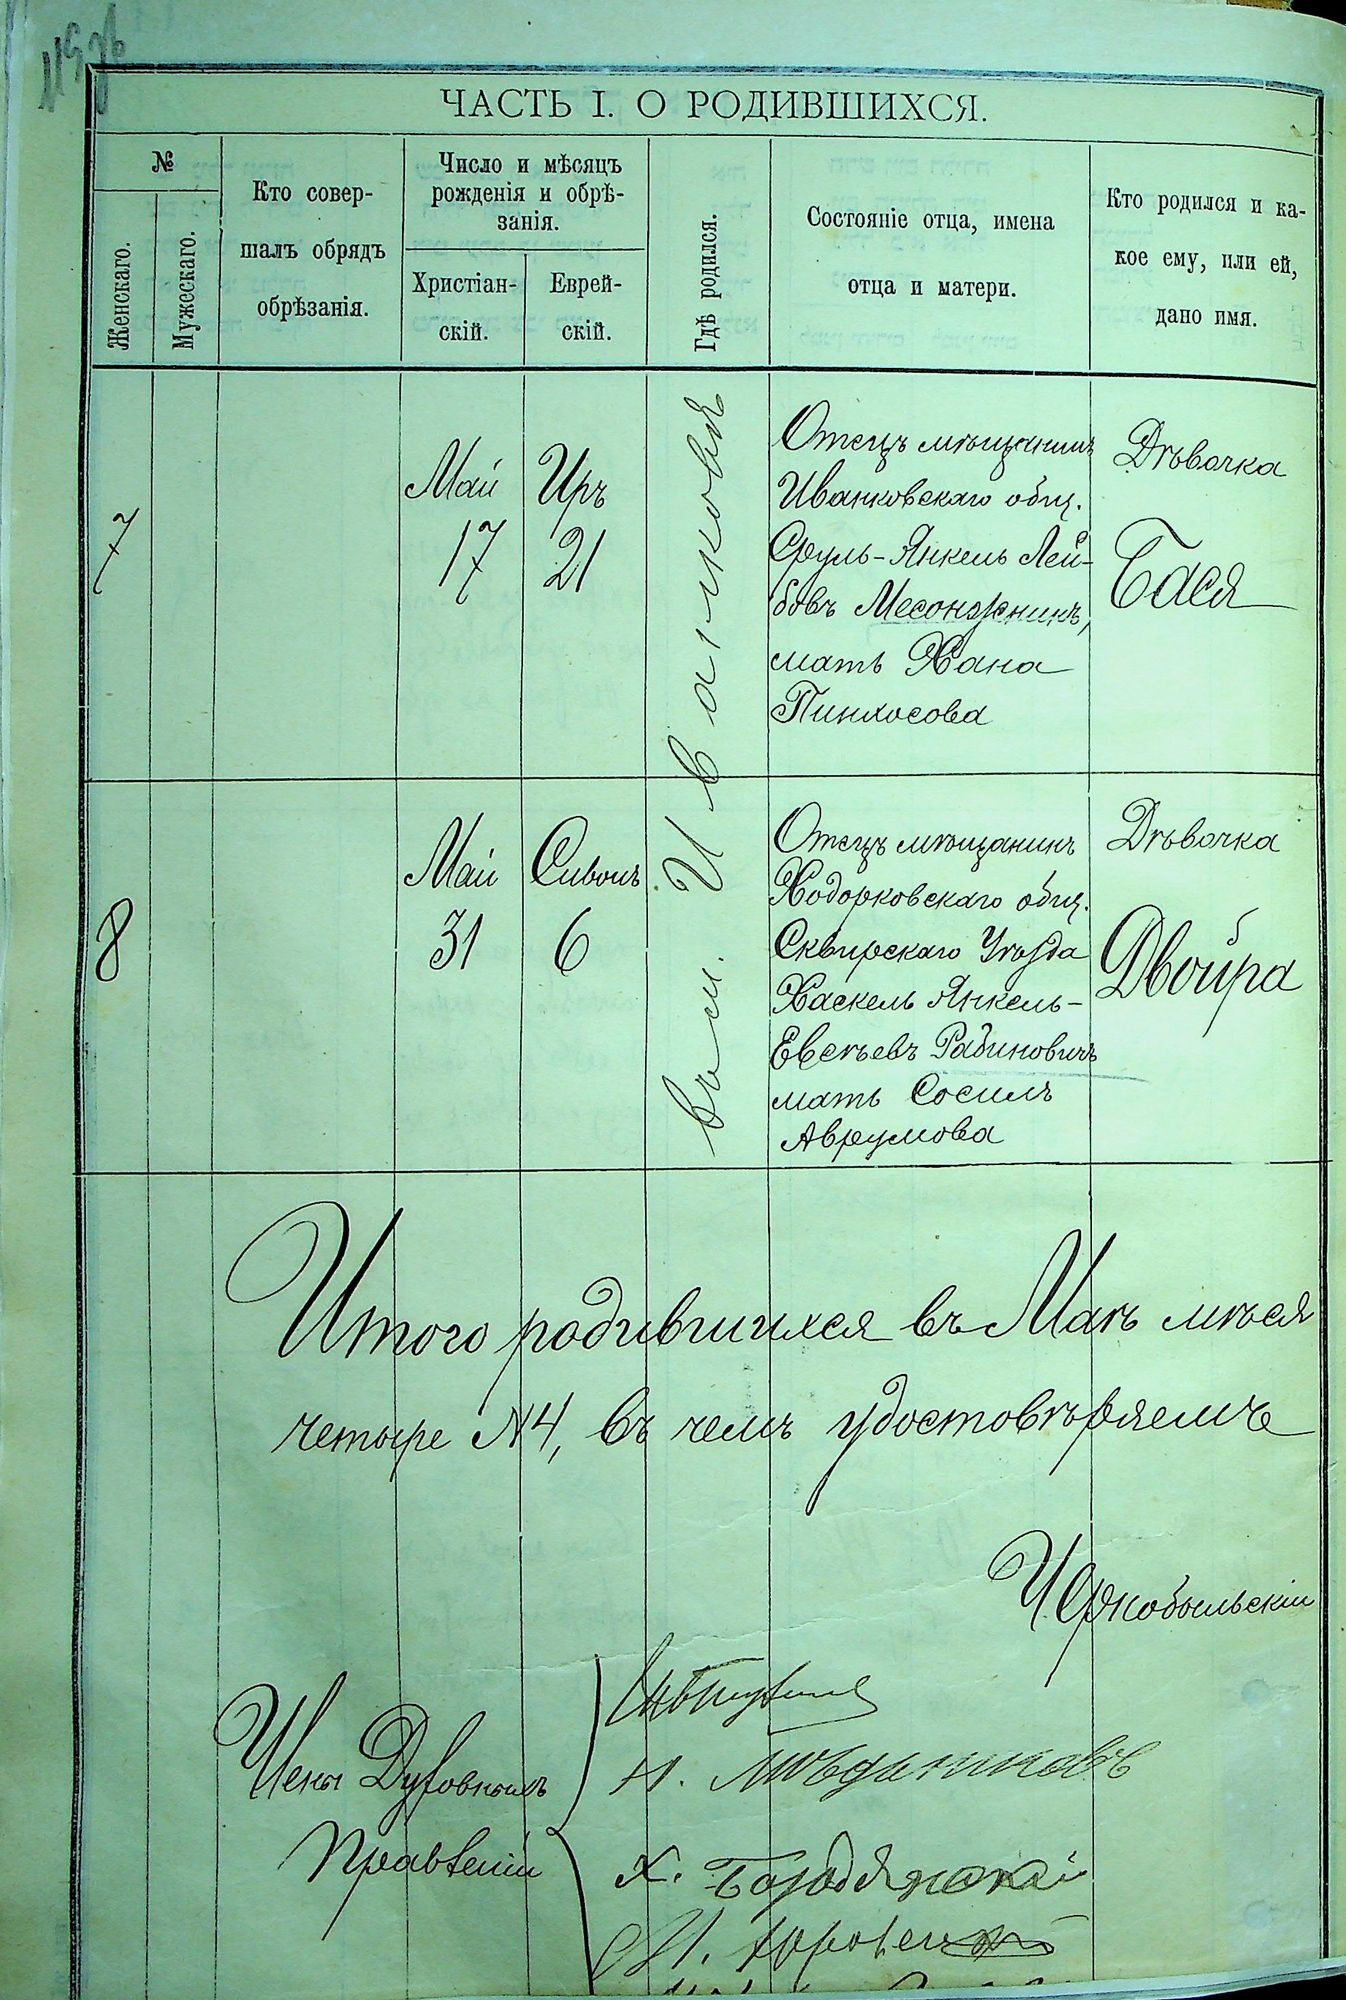 ЧАСТЬ I. О РОДИВШИХСЯ.
№
Женскаго.
Мужескаго.
Кто совер-
шалъ обрядъ
обрѣзанія.
Число и мѣсяцъ
рожденія и обрѣ-
занія.
Христіан-
скій.
Еврей-
скій.
Гдѣ родился.
Состояніе отца, имена
отца и матери.
Кто родился и ка-
кое ему, или ей,
дано имя.
7
Май
17
Иръ
21
въ м. Иванковѣ
Отецъ мѣщанинъ
Иванковскаго общ.
Сруль-Янкель Лей-
бовъ Месонжникъ,
мать Хана
Пинхосова
Дѣвочка
Бася
8
Май
31
Сивонъ
6
Отецъ мѣщанинъ
Ходорковскаго общ.
Сквирскаго Уѣзда
Хаскель Янкель-
Евсѣевъ Рабиновичъ
мать Сосилъ
Аврумова
Дѣвочка
Двойра
Итого родившихся въ Маѣ мѣся
четыре №4, въ чемъ удостовѣряемъ
Чернобыльскій
Члены Духовныхъ
Правленій
Х. Бородянскій